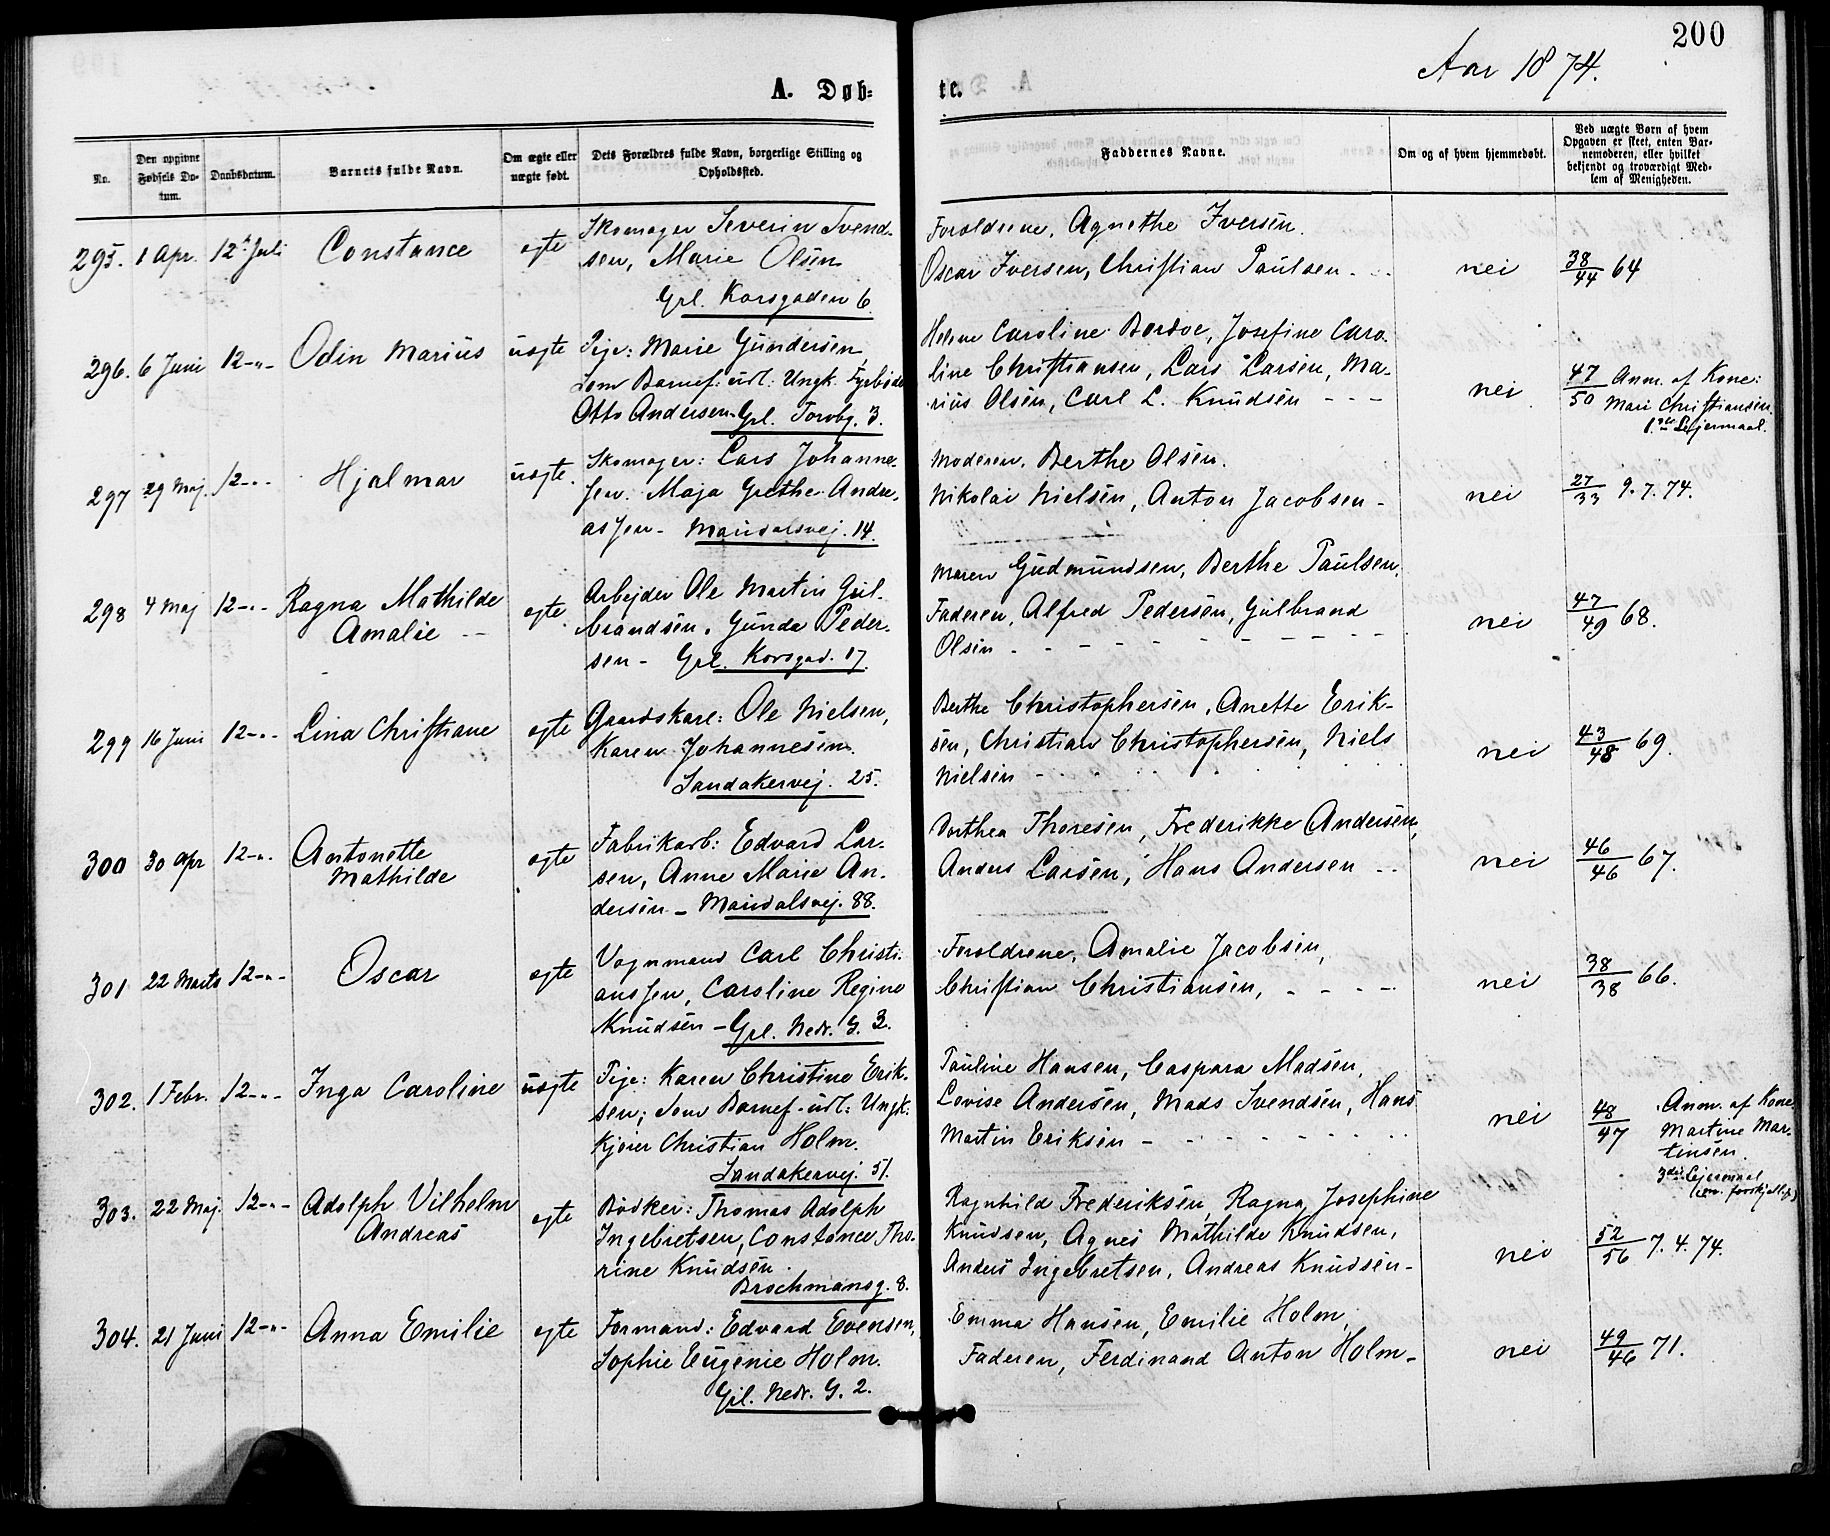 200
Aar 1874.
A. Døb-
te.
No.
Den opgivne Fødsels Da-
tum.
Daabsdatum.
Barnets fulde Navn.
Om ægte eller
uægte født.
Dets Forældres fulde Navn, borgerlige Stilling og
Opholdssted.
Faddernes Navne.
Om og af hvem hjemmedøbt.
Ved uægte Børn af hvem
Opgaven er skeet, enten Bar-
nemoderen, eller hvilket
bekjendt og troværdigt Med-
lem af Menigheden.
295. 1 Apr. 12te Juli Constance ægte
Skomager Severin Svend-
sen, Marie Olsen
Grl. Korsgaden 6.
Forældrene, Agnethe Iversen.
Oscar Iversen, Christian Paulsen - - nei 38/44 64
296. 6 Juni 12-"- Odin Marius uægte
Pige: Marie Gundersen,
som Barnef: udl: Ungk. Fyrbøder
Otto Andersen. Grl. Torvbg. 3.
Helene Caroline Bordoe, Josefine Caro-
line Christiansen, Lars Larsen, Ma-
rius Olsen, Carl L. Knudsen - - - nei 47/50
Anm. af Kone:
Mari Christiansen.
1ste Lejermaal.
297 29 Maj. 12-"- Hjalmar uægte.
Skomager: Lars Johanne-
sen. Maja Grethe Andre-
assen - Maridalsvej. 14.
Moderen. Berthe Olsen.
Nikolai Nielsen, Anton Jacobsen - nei 27/33 9.7.74.
298 4 Maj 12-"- Ragna Mathilde
Amalie - ægte.
Arbejder Ole Martin Gul-
brandsen. Gunda Peder-
sen - Grl. Korsgad. 17.
Maren Gudmundsen, Berthe Paulsen,
Faderen, Alfred Pedersen, Gulbrand
Olsen - - - - - - - - nei 47/49 68.
299 16 Juni 12-"- Lina Christiane ægte
Gaardskarl: Ole Nielsen,
Karen Johannesen.
Sandakervej. 25.
Berthe Christophersen, Anette Erik-
sen, Christian Christophersen, Niels
Nielsen - nei 43/48 69.
300 30 Apr 12-"- Antonette
Mathilde ægte
Fabrikarb: Edvard Lar-
sen, Anne Marie An-
dersen - Maridalsvej. 88.
Dorthea Thoresen, Frederikke Andersen,
Anders Larsen, Hans Andersen - - nei 46/46 67.
301 22 Marts 12-"- Oscar ægte
Vognmand Carl Christi-
anssen, Caroline Regine
Knudsen - Grl. Nedr. G. 3.
Forældrene, Amalie Jacobsen,
Christian Christiansen, - - - - nei 38/38 66.
302. 1 Febr. 12-"- Inga Caroline uægte
Pige: Karen Christine Erik-
sen; som Barnef. udl: Ungk:
Kjører Christian Holm.
Sandakervej. 51.
Pauline Hansen, Caspara Madsen,
Lovise Andersen, Mads Svendsen, Hans
Martin Eriksen - - - - - nei 48/47
Anm. af Kone
Martine Mar-
tinsen.
3die Lejermaal
303. 22 Maj. 12-"- Adolph Vilhelm
Andreas ægte
Bødker: Thomas Adolph
Ingebretsen, Constance Tho-
rine Knudsen.
Brochmansg. 8.
Ragnhild Frederiksen, Ragna Josephine
Knudsen, Agnes Mathilde Knudsen,
Anders Ingebretsen, Andreas Knudsen - nei 52/56 7.4.74.
304. 21 Juni 12-"- Anna Emilie ægte
Formand: Edvard Evensen,
Sophie Eugenie Holm.
Grl. Nedr. G. 2.
Emma Hansen, Emilie Holm,
Faderen, Ferdinand Anton Holm - nei 49/46 71.